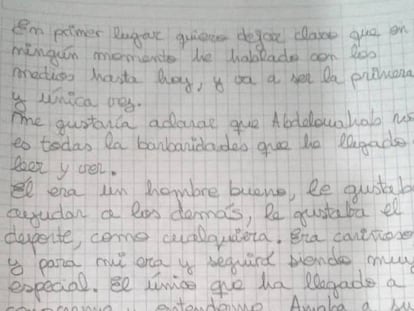 En primer lugar quiero dejar claro que en
ningún momento he hablado con los
medios hasta hoy, y va a ser la primera
y única vez.
Me gustaría aclarar que Abdelouahab no
es todas la barbaridades que he llegado
leer y ver.
Él era un hombre bueno, le gustab
ayudar a los demás, le gustaba el
deporte, como cualquiera. Era cariñoso
y para mi era y seguirá siendo muy
especial. El único que ha llegado a
y entenderme